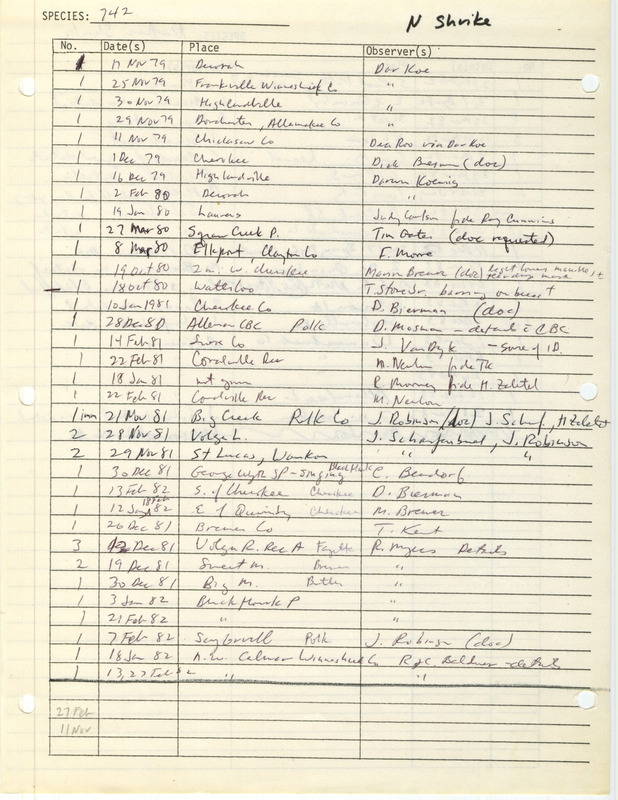 SPECIES: 742
N Shrike
No. Date(s) Place Observer(s)
1 17 Nov 79 Decorah Dar Koe
1 25 Nov 79 Frankville Winneshiek Co "
1 30 Nov 79 Highlandville "
1 29 Nov 79 Dorchester, Allamakee Co "
1 11 Nov 79 Chickasaw Co Dea Roo via Dar Koe
1 1 Dec 79 Cherokee Dick Bierman (doc)
1 16 Dec 79 Highlandville Darwin Koenig
1 2 Feb 80 Decorah "
1 19 Jan 80 Laurens Judy Carlson fide Ray Cummins
1 27 Mar 80 Squaw Creek P. Tim Gates (doc requested)
1 8 Mar 80 Elkport, Clayton Co F. Moore
1 19 Oct 80 2 mi. W. Cherokee Marion Brewer (doc)
1 18 Oct 80 Waterloo T. Stone Jr. barring on breast
1 10 Jan 1981 Cherokee Co D. Bierman (doc)
1 28 Dec 80 Alleman CBC Polk D. Mosman - details c CBC
1 14 Feb 81 Co J. VanDyk - sure of ID.
1 22 Feb 81 Coralville Res M. Newlon fide TK
1 18 Jan 81 not given R. Mooney fide H. Zaletel
1 22 Feb 81 Coralville Res M. Newlon
1 imm 21 Nov 81 Big Creek Polk Co J. Robinson (doc) J. Scharf, H Zaletel
2 28 Nov 81 Volga L. J. Scharfenberg, J. Robinson
2 29 Nov 81 St Lucas, Waukon " "
1 30 Dec 81 George Wyth SP - Singing Black Hawk C. Bendorf
1 13 Feb 82 S. of Cherokee Cherokee D. Bierman
1 12 Jan 82 18 Feb E of Quimby Cherokee M. Brewer
1 26 Dec 81 Bremer Co T. Kent
3 12 Dec 81 Volga R. Rec A Fayette R. Myers Details
2 19 Dec 81 Sweet M. Bremer "
1 30 Dec 81 Big M. Butler "
1 3 Jan 82 Black Hawk P "
1 21 Feb 82 " "
1 7 Feb 82 Saylorville Polk J. Robinson (doc)
1 18 Jan 82 N.W. Calmar Winneshiek Co R&C. Baldner - details
1 13, 27 Feb 82 " "
27 Feb
11 Nov